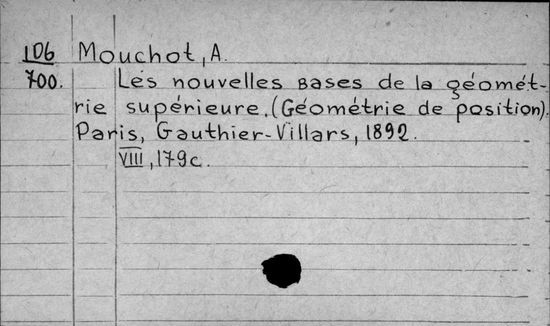 106 Mouchot, A.
700. Les nouvelles bases de la géomét-
rie supérieure. (Géométrie de position).
Paris, Gauthier-Villars, 1892.
VIII, 179c.